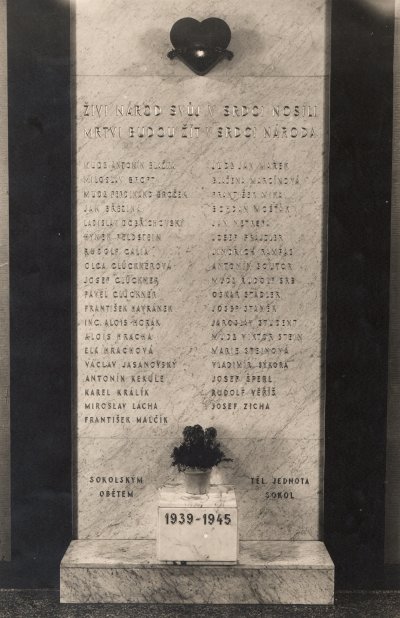 ŽIVÍ NÁROD SVŮJ V SRDCI NOSILI
MRTVI BUDOU ŽÍT V SRDCI NÁRODA
MUDR ANTONÍN
MILOSLAV
MUDR FERDINAND BROŽEK
JAN BŘEZINA
LADISLAV DOBŘICHOVSKÝ
HYNEK FELDSTEIN
RUDOLF GALIA
OLGA GLÜCKNEROVÁ
JOSEF GLÜCKNER
PAVEL GLÜCKNER
FRANTIŠEK HAVRÁNEK
ING. ALOIS HORÁK
ALOIS HRACHA
ELA HRACHOVÁ
VÁCLAV JASANOVSKÝ
ANTONÍN KEKULE
KAREL KRÁLÍK
MIROSLAV LÁCHA
FRANTIŠEK MALČÍK
JUDR JAN MAREK
BLAŽENA MARŠÍNOVÁ
FRANTIŠEK
BOHDAN
JAN
JOSEF PRAJZLER
JINDŘICH
ANTONÍN SOUTOR
MUDR RUDOLF SRB
OSKAR STADLER
JOSEF STANĚK
JAROSLAV STUDENT
MUDR VIKTOR STEIN
MARIE STEINOVÁ
VLADIMÍR SÝKORA
JOSEF ŠPERL
RUDOLF VĚŘÍŠ
JOSEF ZÍCHA
SOKOLSKÝM
OBĚTEM
TĚL. JEDNOTA
SOKOL
1939-1945